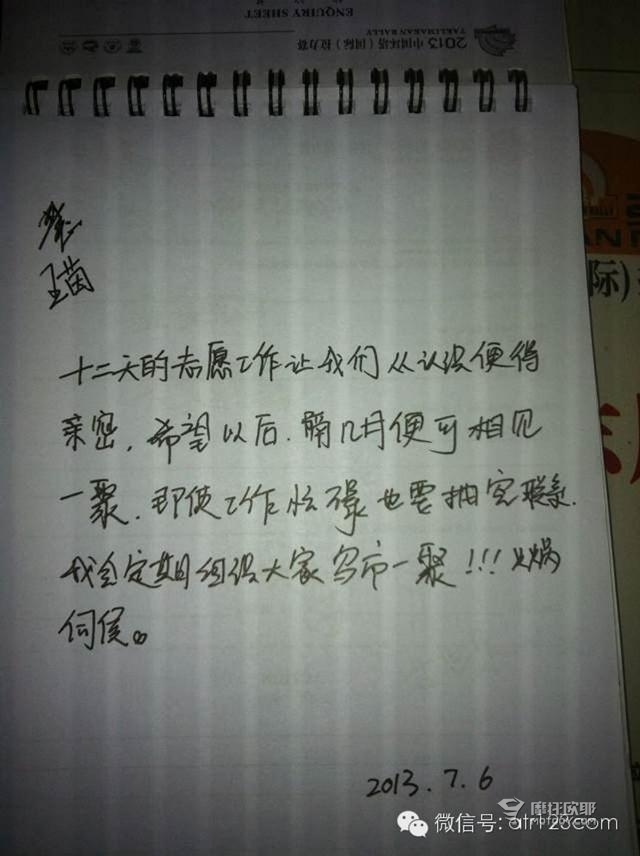 ENQUIRY SHEET
TAKLIMAKAN RALLY
2013 中国环塔（国际）拉力赛
际)
王苗
十二天的志愿工作让我们从认识便得
亲密，希望以后．隔几月便可相见
一聚．即使工作忙碌也要抽空联系．
我会定期组织大家乌市一聚！！！火锅
伺侯。
2013.7.6
摩托欧耶
微信号: atr123com